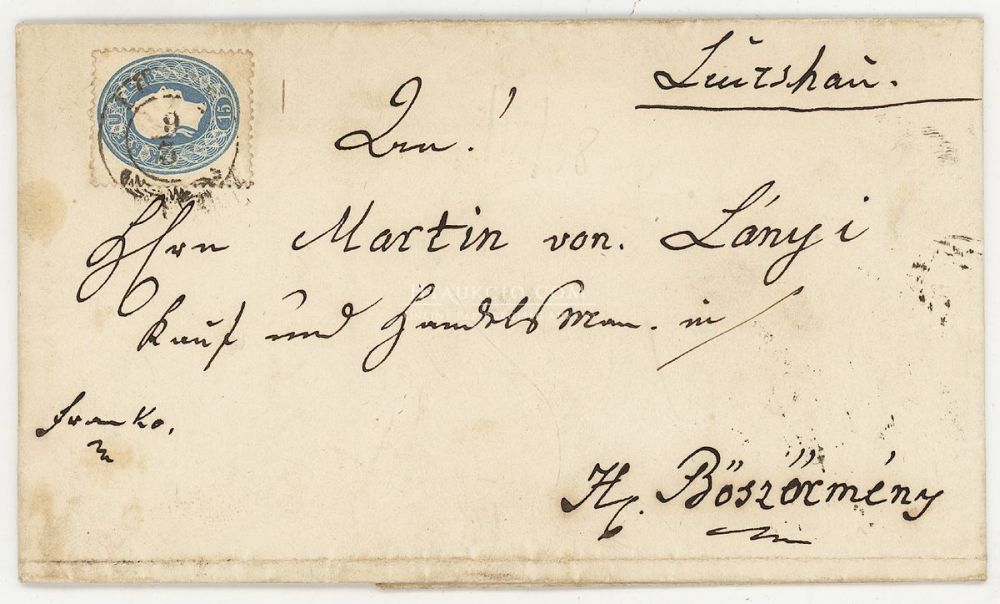 Leutshau.
Hrn Martin von. Lányi
Kauf und Handels Man. in
Franko.
H. Böszörmény